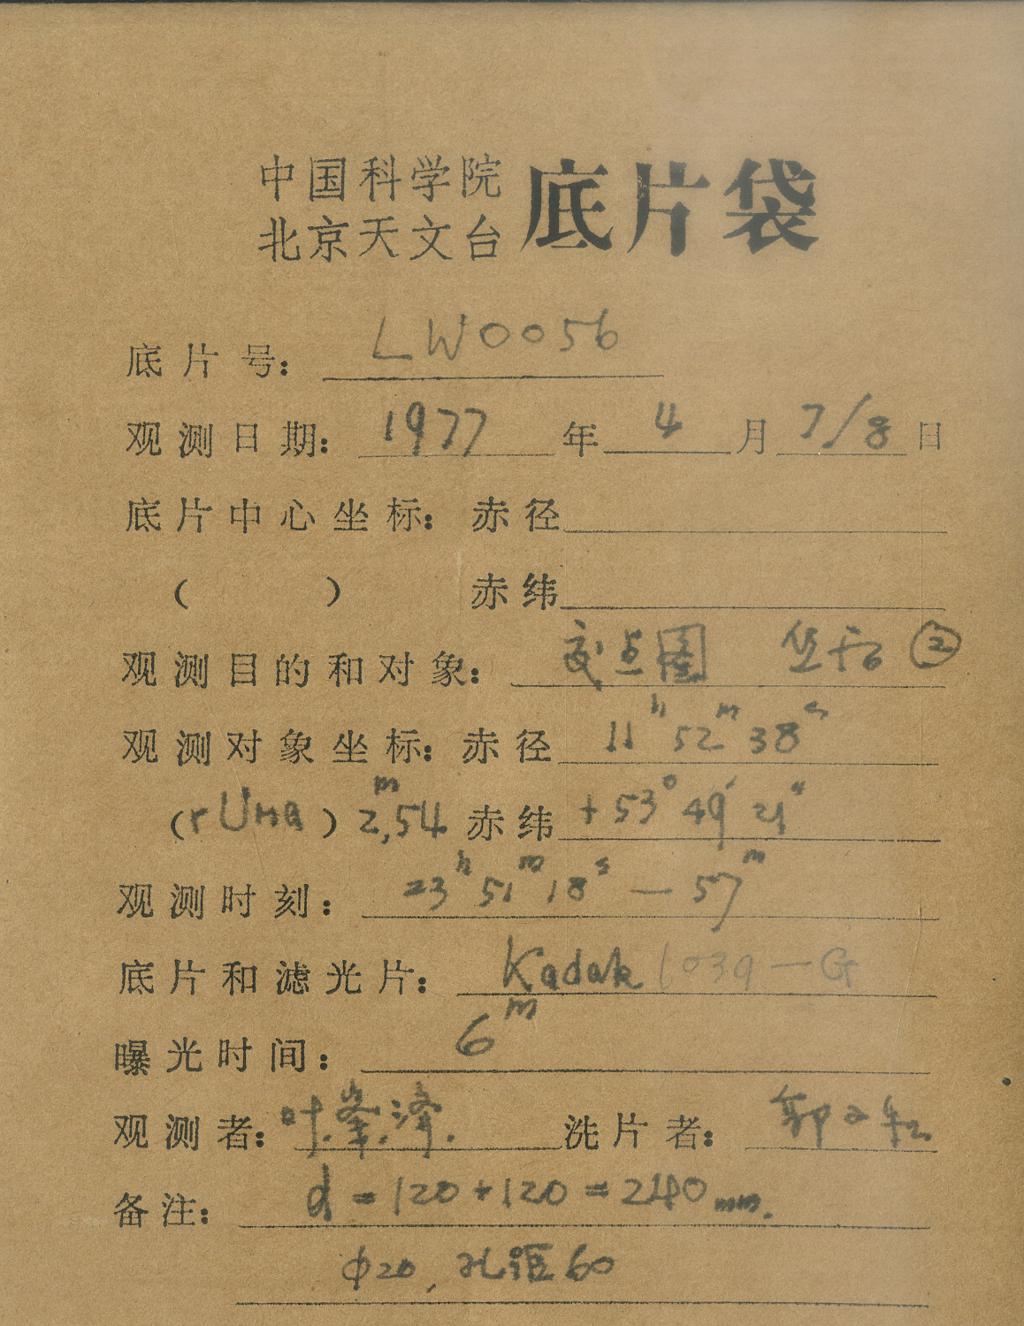 中国科学院
北京天文台 底片袋
底片号: LW0056
观测日期: 1977年 4月 7/8日
底片中心坐标: 赤径
( ) 赤纬
观测目的和对象: 交点图 ②
观测对象坐标: 赤径 11h 52m 38s
(r UMa) 2m,54 赤纬 +53° 49′ 21″
观测时刻: 23h 51m 18s — 57m
底片和滤光片: Kodak 103a-G
曝光时间: 6m
观测者: 叶 洗片者: 郭
备注: d = 120 + 120 = 240 mm.
φ20, 孔距60